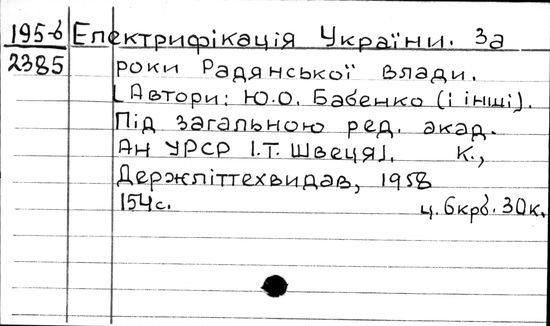 195-6 Електрифікація України. За
2385 роки Радянської влади.
[Автори: Ю.О. Бабенко (і інші).
Під загальною ред. акад.
АН УРСР І.Т. Швеця]. К.,
Держліттехвидав, 1958
154с. ц. 6крб. 30к.